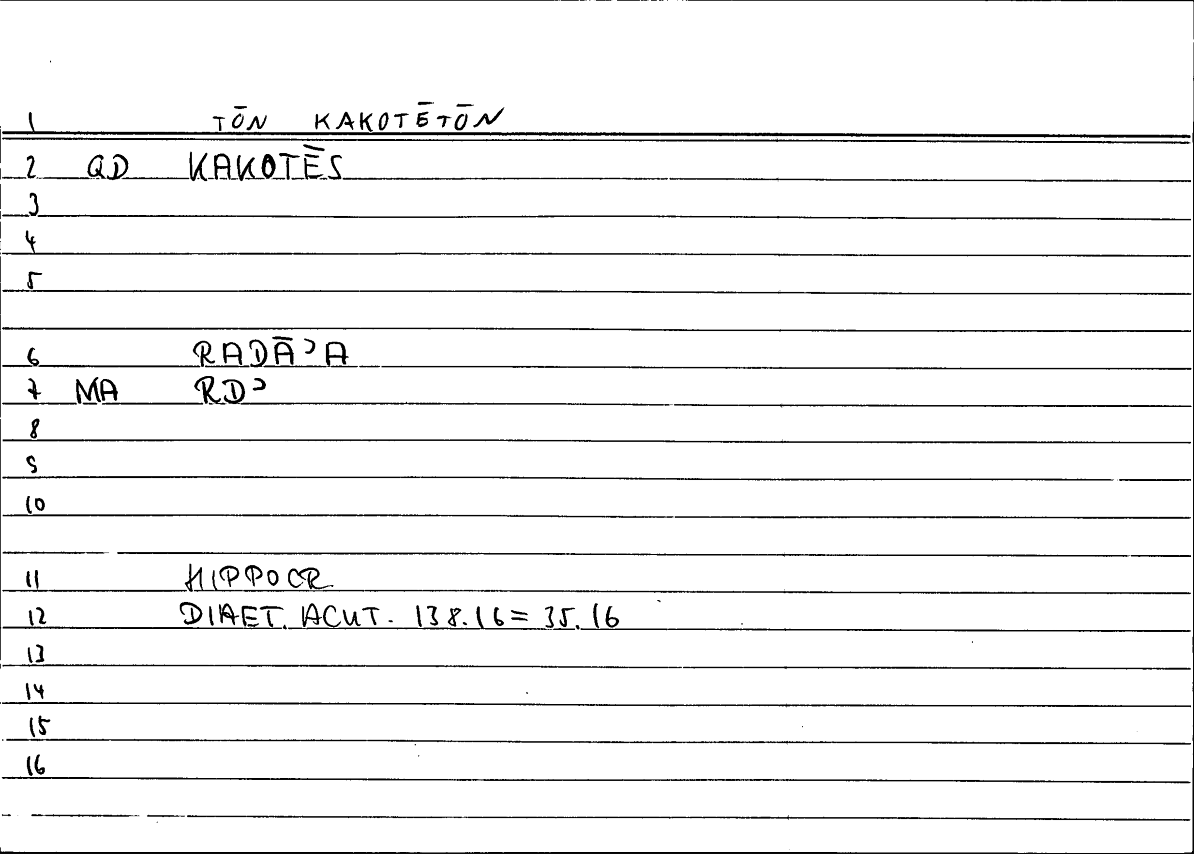 1 TŌN KAKOTĒTŌN
2 QD KAKOTĒS
3
4
5
6 RADĀʾA
7 MA RDʾ
8
9
10
11 HIPPOCR
12 DIAET. ACUT. 138.16 = 35.16
13
14
15
16